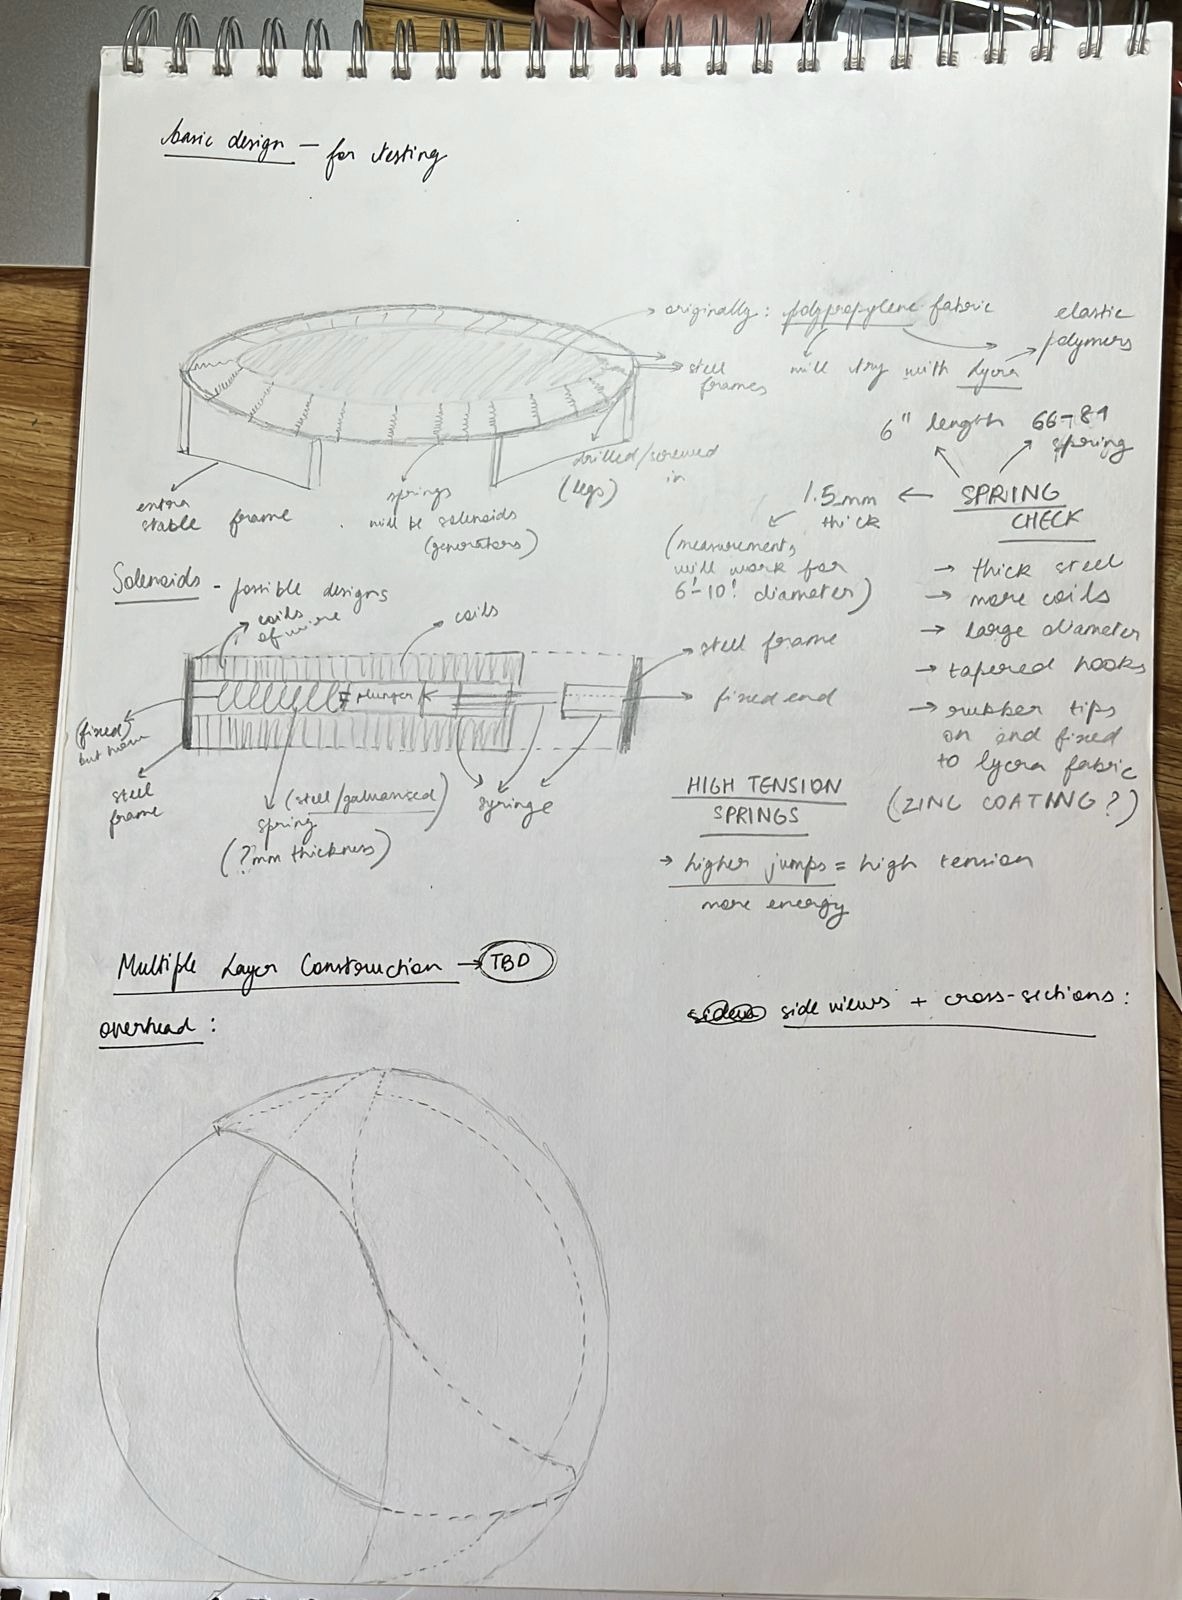 basic design — for testing
→ originally: polypropylene fabric
elastic
polymers
will try with lycra
→ steel
frames
drilled/screwed
in
(legs)
extra
stable frame
springs
will be solenoids
(generators)
6" length
66-84
spring
1.5mm
thick
← SPRING
CHECK
(measurements
will work for
6'-10' diameter)
→ thick steel
→ more coils
→ large diameter
→ tapered hooks
→ rubber tips
on end fixed
to lycra fabric
(ZINC COATING?)
Solenoids - possible designs
coils
of wire
coils
plunger
steel frame
fixed end
(fixed)
steel
frame
(steel/galvanised)
spring
(?mm thickness)
syringe
HIGH TENSION
SPRINGS
→ higher jumps = high tension
more energy
Multiple Layer Construction → TBD
overhead:
side views + cross-sections: